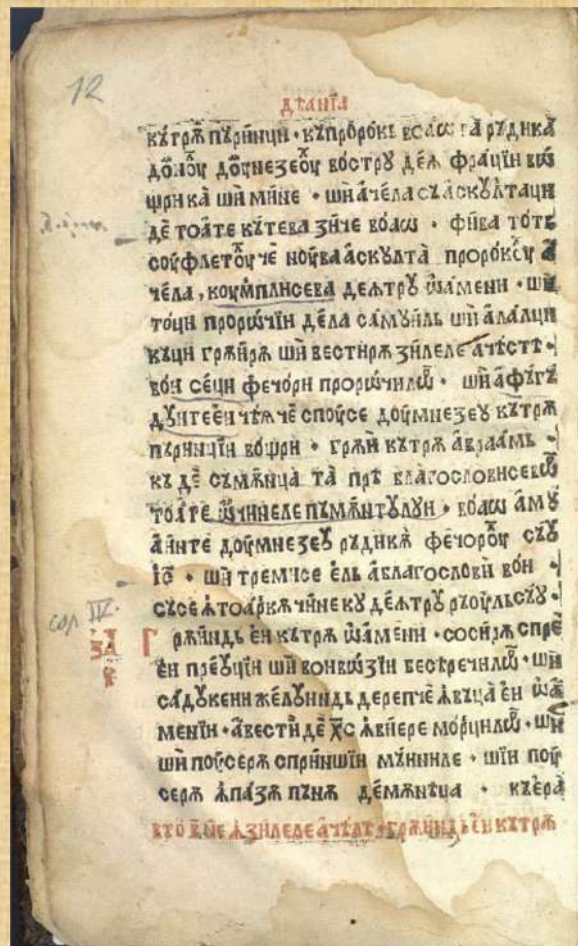 12
дѣанїа
кътрѫ пъринци · къ пророкь воаѡ та рꙋдика
дѡⷨнꙋⷧ дꙋмнезеꙋⷧ востру деѧ фрацїи вѡ
щри ка ши мине · ши ачела съаскꙋлтаци
де тоате кътева зиче воаѡ · фива тотъ
сꙋфлетꙋⷧ че нꙋва аскꙋлта пророкꙋⷧ а
чела, коумплисева деѧтру ѡамени · ши
тоци пророчїи дела самꙋиль ши алалци
къци грѫирѫ ши вестирѫ зиледе ачѣсте ·
вои сеци фечори пророчилѡⷬ · ши афъгъ
дꙋитееи чѣѧче спꙋсе дꙋмнезеꙋ кътрѫ
пъринцїи вощри · грѫи кътрѫ авраамь ·
къ де съмѫнца та прѣ благословисевѡⷬ
тоате ѡчинеле пъмѫнтꙋлꙋи · воаѡ амꙋ
аинте дꙋмнезеꙋ рꙋдикѫ фечорꙋⷧ съꙋ
іс҃ · ши тремисе ель аблагослови вои ·
съсе ѧтоаркѫ чинеку деѧтру рѫꙋльсъꙋ ·
cap IV.
за҃ч Грѫиндь еи кътрѫ ѡамени · сосирѫ спре
еи преꙋцїи ши вонвѡзїи бесѣречилѡⷬ · ши
садꙋкеии желꙋиндь дерепче ѧвъца еи ѡа
менїи · авестиде х҃с ѧвиере морцилѡⷬ · ши
ши пꙋсерѫ сприншїи мъниле · шїи пꙋ
серѫ ѧпазѫ пънѫ демѫнѣца · къера
ѧ зиледе ачѣле · грѫиндь еи кътрѫ